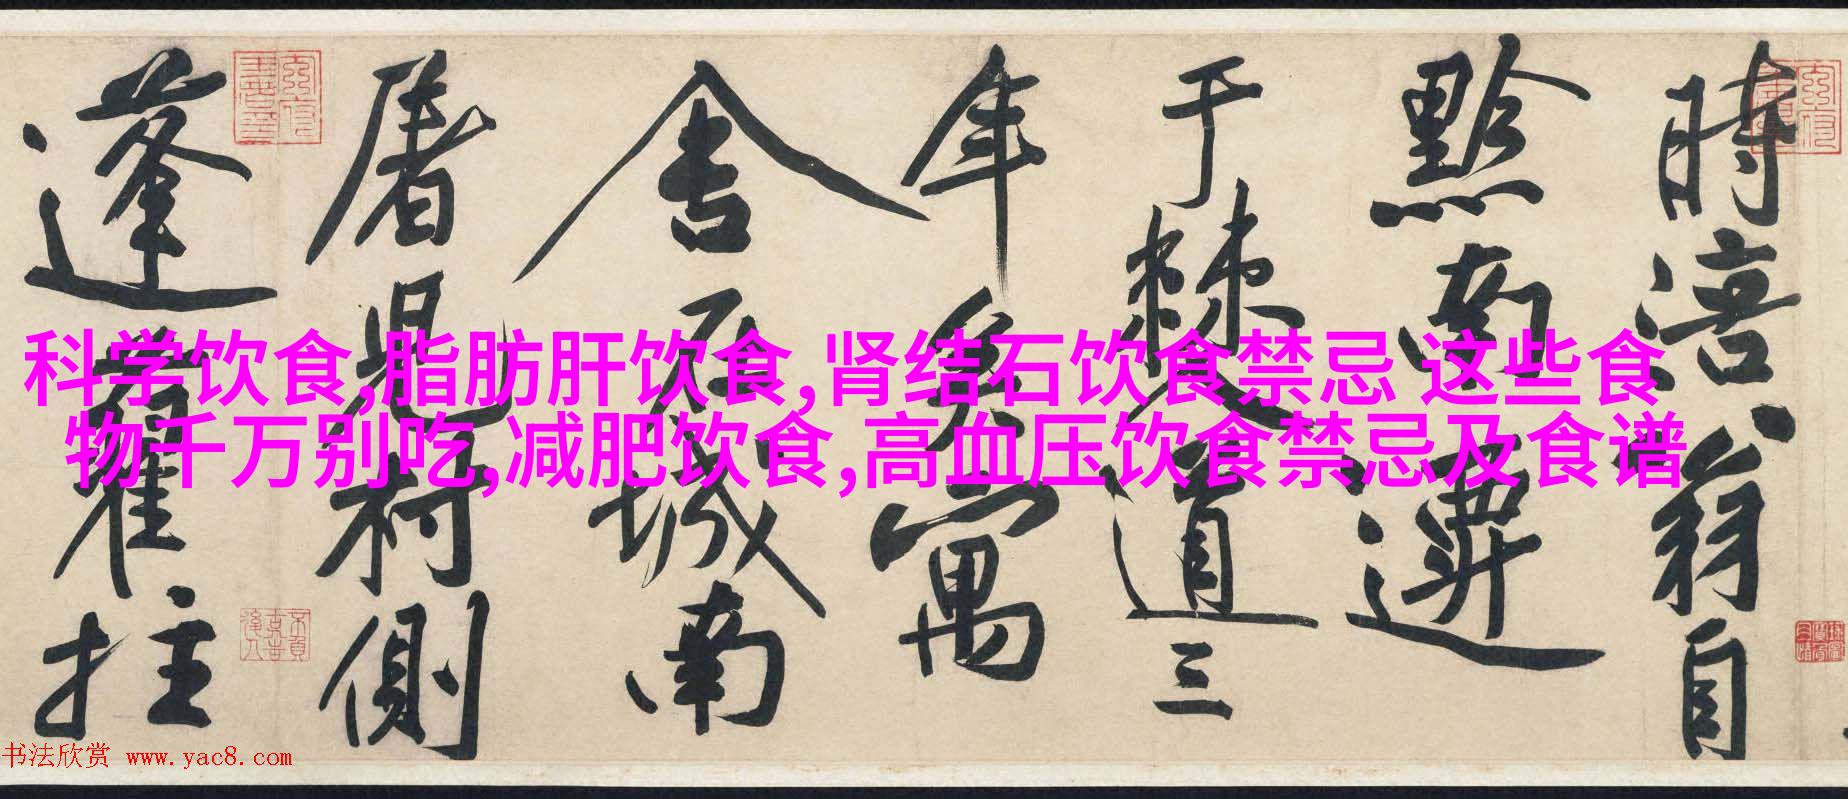 科学饮食,脂肪肝饮食,肾结石饮食禁忌 这些食
物千万别吃,减肥饮食,高血压饮食禁忌及食谱
時涪翁自
黔南遷
于棘道三
年矣寓
舍在城南
屠兒村側
蓬藋拄
书法欣赏 www.yac8.com